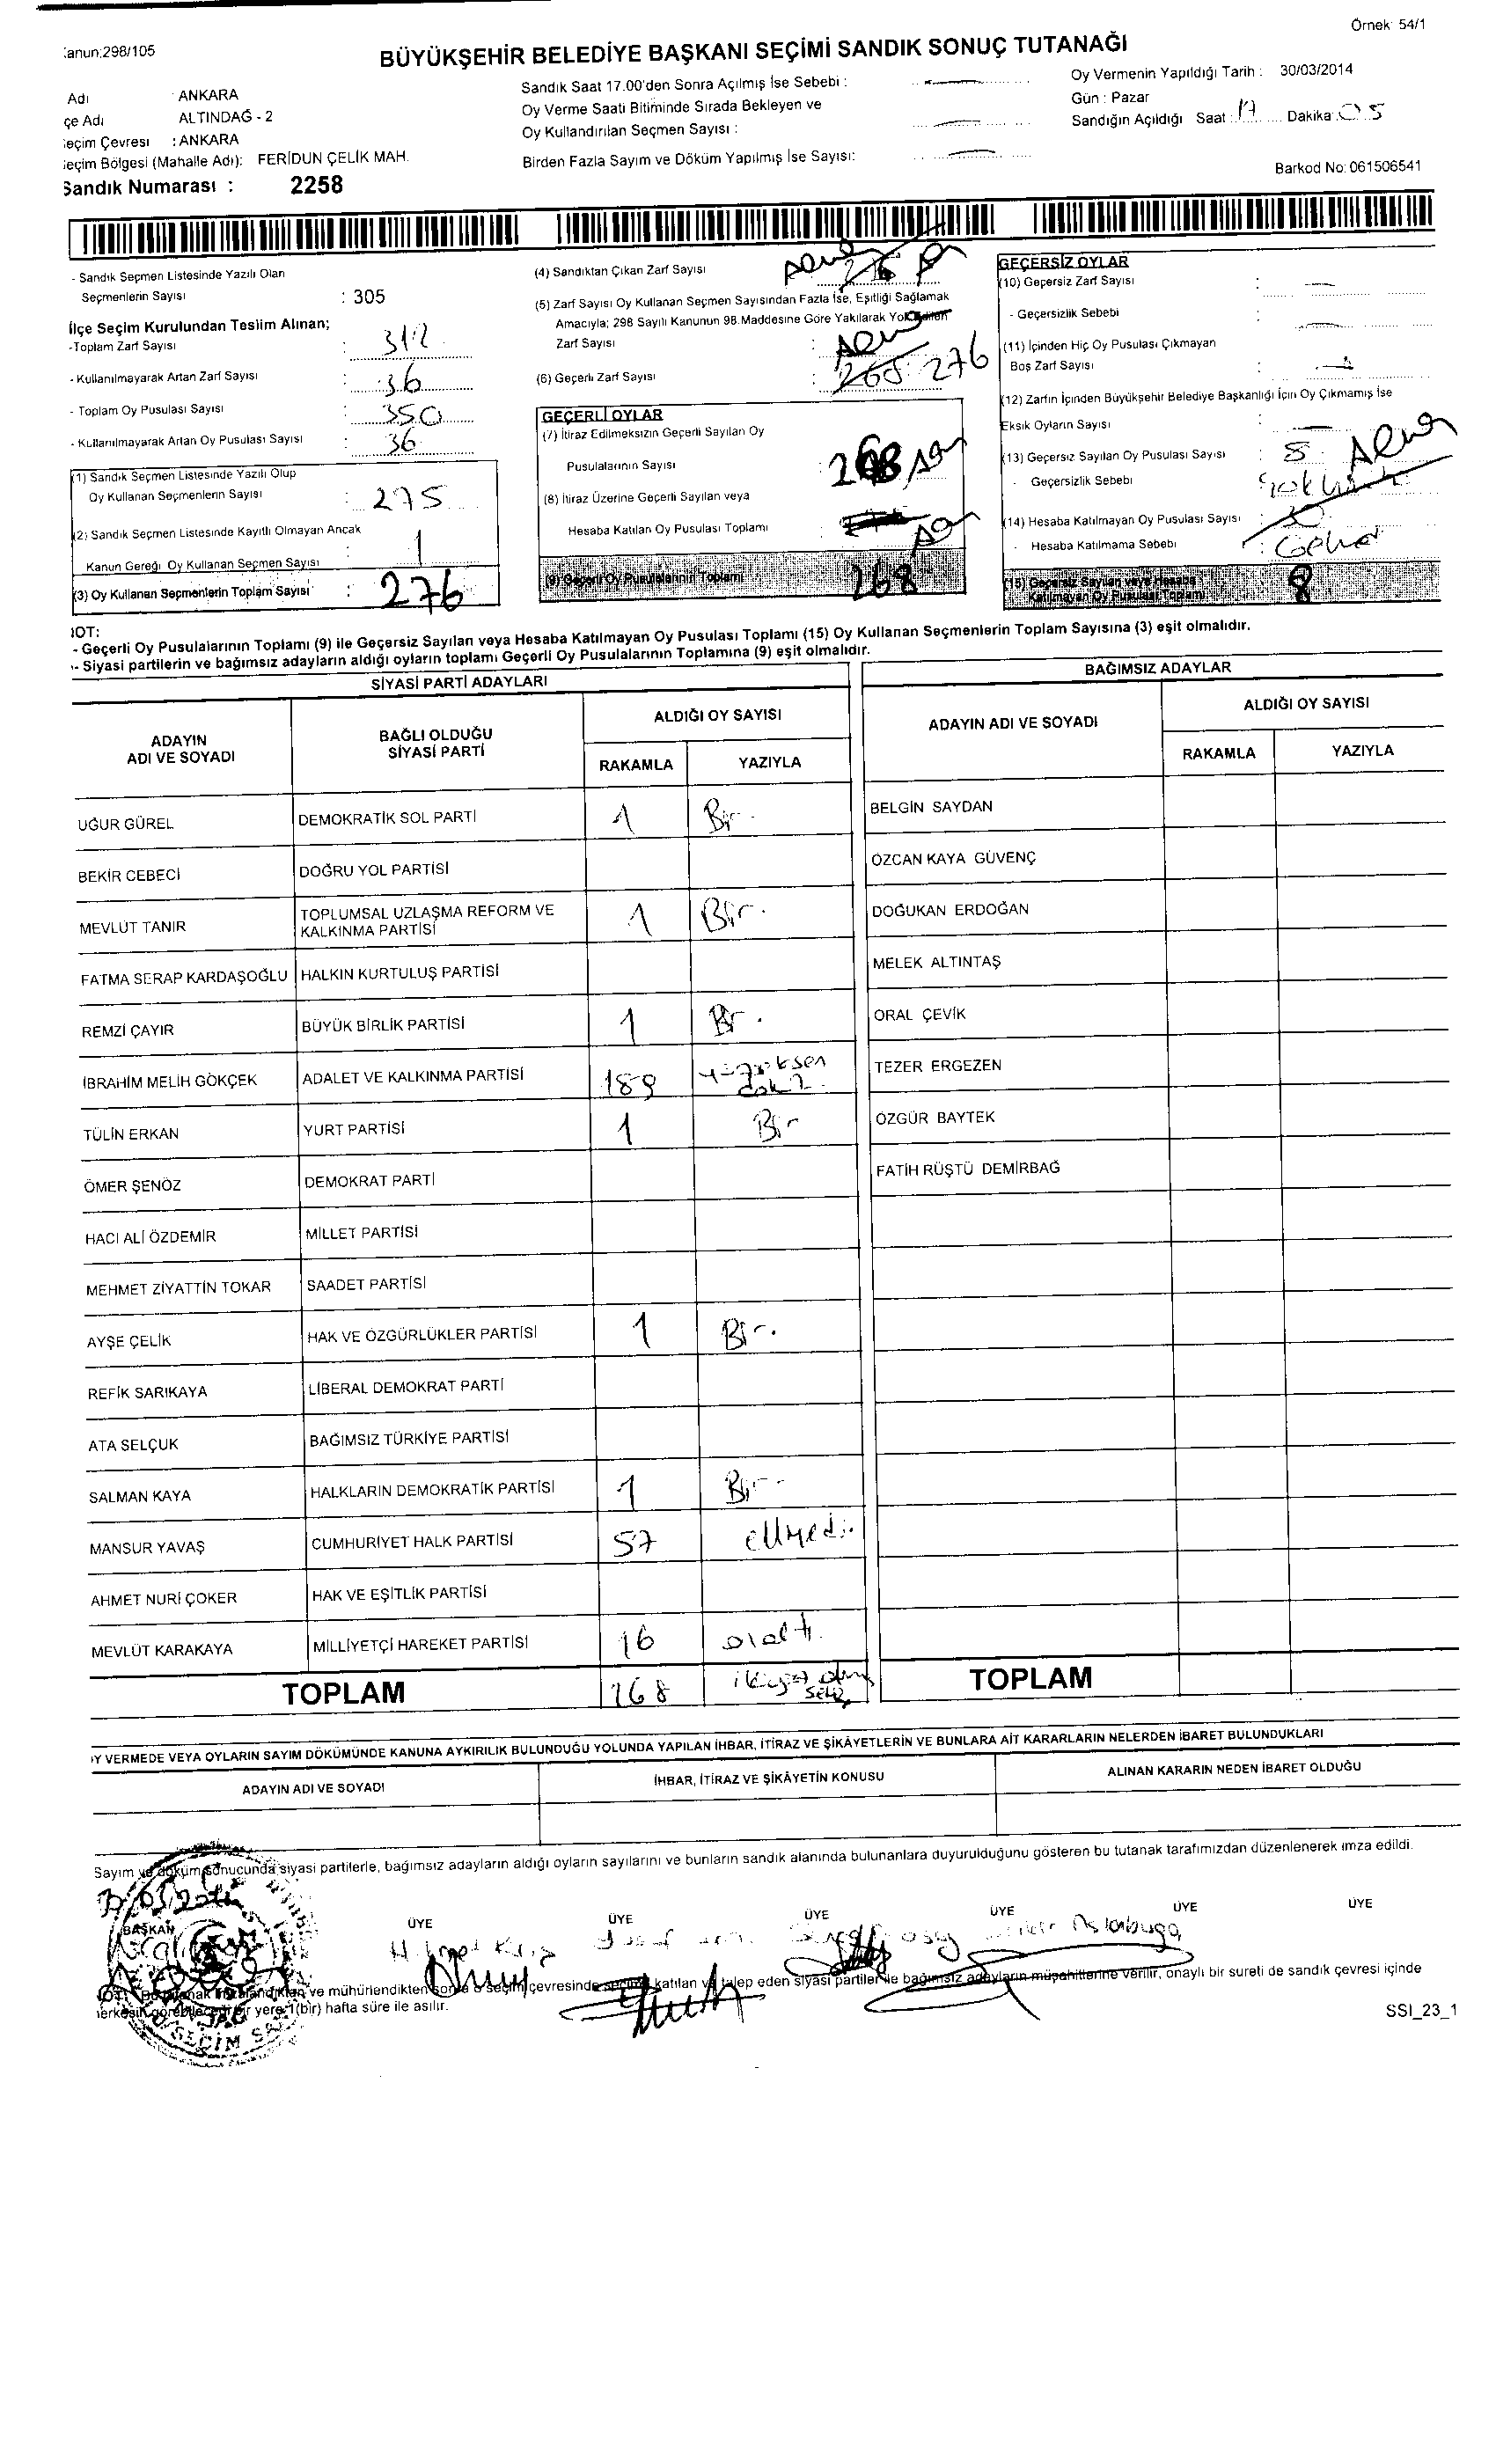 Örnek: 54/1
anun:298/105
BÜYÜKŞEHİR BELEDİYE BAŞKANI SEÇİMİ SANDIK SONUÇ TUTANAĞI
Adı ANKARA
çe Adı ALTINDAĞ - 2
eçim Çevresi : ANKARA
eçim Bölgesi (Mahalle Adı): FERİDUN ÇELİK MAH.
Sandık Numarası : 2258
Sandık Saat 17.00'den Sonra Açılmış İse Sebebi :
Oy Verme Saati Bitiminde Sırada Bekleyen ve
Oy Kullandırılan Seçmen Sayısı :
Birden Fazla Sayım ve Döküm Yapılmış İse Sayısı:
Oy Vermenin Yapıldığı Tarih : 30/03/2014
Gün : Pazar
Sandığın Açıldığı Saat : 17 Dakika : 05
Barkod No: 061506541
- Sandık Seçmen Listesinde Yazılı Olan
Seçmenlerin Sayısı : 305
İlçe Seçim Kurulundan Teslim Alınan;
-Toplam Zarf Sayısı : 312
- Kullanılmayarak Artan Zarf Sayısı : 36
- Toplam Oy Pusulası Sayısı : 350
- Kullanılmayarak Artan Oy Pusulası Sayısı : 36
(1) Sandık Seçmen Listesinde Yazılı Olup
Oy Kullanan Seçmenlerin Sayısı : 275
(2) Sandık Seçmen Listesinde Kayıtlı Olmayan Ancak
Kanun Gereği Oy Kullanan Seçmen Sayısı : 1
(3) Oy Kullanan Seçmenlerin Toplam Sayısı : 276
(4) Sandıktan Çıkan Zarf Sayısı 276
(5) Zarf Sayısı Oy Kullanan Seçmen Sayısından Fazla İse, Eşitliği Sağlamak
Amacıyla; 298 Sayılı Kanunun 98.Maddesine Göre Yakılarak Yok Edilen
Zarf Sayısı :
(6) Geçerli Zarf Sayısı : 268 276
GEÇERLİ OYLAR
(7) İtiraz Edilmeksizin Geçerli Sayılan Oy
Pusulalarının Sayısı : 268
(8) İtiraz Üzerine Geçerli Sayılan veya
Hesaba Katılan Oy Pusulası Toplamı :
(9) Geçerli Oy Pusulalarının Toplamı 268
GEÇERSİZ OYLAR
(10) Geçersiz Zarf Sayısı :
- Geçersizlik Sebebi :
(11) İçinden Hiç Oy Pusulası Çıkmayan
Boş Zarf Sayısı :
(12) Zarfın İçinden Büyükşehir Belediye Başkanlığı İçin Oy Çıkmamış İse
Eksik Oyların Sayısı :
(13) Geçersiz Sayılan Oy Pusulası Sayısı : 8
- Geçersizlik Sebebi :
(14) Hesaba Katılmayan Oy Pusulası Sayısı :
- Hesaba Katılmama Sebebi :
(15) Geçersiz Sayılan veya Hesaba
Katılmayan Oy Pusulası Toplamı 8
NOT:
- Geçerli Oy Pusulalarının Toplamı (9) ile Geçersiz Sayılan veya Hesaba Katılmayan Oy Pusulası Toplamı (15) Oy Kullanan Seçmenlerin Toplam Sayısına (3) eşit olmalıdır.
- Siyasi partilerin ve bağımsız adayların aldığı oyların toplamı Geçerli Oy Pusulalarının Toplamına (9) eşit olmalıdır.
SİYASİ PARTİ ADAYLARI
ADAYIN ADI VE SOYADI BAĞLI OLDUĞU SİYASİ PARTİ ALDIĞI OY SAYISI
RAKAMLA YAZIYLA
UĞUR GÜREL DEMOKRATİK SOL PARTİ 1 Bir
BEKİR CEBECİ DOĞRU YOL PARTİSİ
MEVLÜT TANIR TOPLUMSAL UZLAŞMA REFORM VE KALKINMA PARTİSİ 1 Bir.
FATMA SERAP KARDAŞOĞLU HALKIN KURTULUŞ PARTİSİ
REMZİ ÇAYIR BÜYÜK BİRLİK PARTİSİ 1 Bir.
İBRAHİM MELİH GÖKÇEK ADALET VE KALKINMA PARTİSİ 189
TÜLİN ERKAN YURT PARTİSİ 1 Bir
ÖMER ŞENÖZ DEMOKRAT PARTİ
HACI ALİ ÖZDEMİR MİLLET PARTİSİ
MEHMET ZİYATTİN TOKAR SAADET PARTİSİ
AYŞE ÇELİK HAK VE ÖZGÜRLÜKLER PARTİSİ 1 Bir.
REFİK SARIKAYA LİBERAL DEMOKRAT PARTİ
ATA SELÇUK BAĞIMSIZ TÜRKİYE PARTİSİ
SALMAN KAYA HALKLARIN DEMOKRATİK PARTİSİ 1 Bir
MANSUR YAVAŞ CUMHURİYET HALK PARTİSİ 57 elliyedi
AHMET NURİ ÇOKER HAK VE EŞİTLİK PARTİSİ
MEVLÜT KARAKAYA MİLLİYETÇİ HAREKET PARTİSİ 16 onaltı
TOPLAM 268
BAĞIMSIZ ADAYLAR
ADAYIN ADI VE SOYADI ALDIĞI OY SAYISI
RAKAMLA YAZIYLA
BELGİN SAYDAN
ÖZCAN KAYA GÜVENÇ
DOĞUKAN ERDOĞAN
MELEK ALTINTAŞ
ORAL ÇEVİK
TEZER ERGEZEN
ÖZGÜR BAYTEK
FATİH RÜŞTÜ DEMİRBAĞ
TOPLAM
Y VERMEDE VEYA OYLARIN SAYIM DÖKÜMÜNDE KANUNA AYKIRILIK BULUNDUĞU YOLUNDA YAPILAN İHBAR, İTİRAZ VE ŞİKÂYETLERİN VE BUNLARA AİT KARARLARIN NELERDEN İBARET BULUNDUKLARI
ADAYIN ADI VE SOYADI İHBAR, İTİRAZ VE ŞİKÂYETİN KONUSU ALINAN KARARIN NEDEN İBARET OLDUĞU
Sayım ve döküm sonucunda siyasi partilerle, bağımsız adayların aldığı oyların sayılarını ve bunların sandık alanında bulunanlara duyurulduğunu gösteren bu tutanak tarafımızdan düzenlenerek imza edildi.
BAŞKAN ÜYE ÜYE ÜYE ÜYE ÜYE ÜYE
ve mühürlendikten sonra o seçim çevresinde seçime katılan ve talep eden siyasi partiler ile bağımsız adayların müşahitlerine verilir, onaylı bir sureti de sandık çevresi içinde
herkesin görebileceği bir yere 1(bir) hafta süre ile asılır.
SSI_23_1